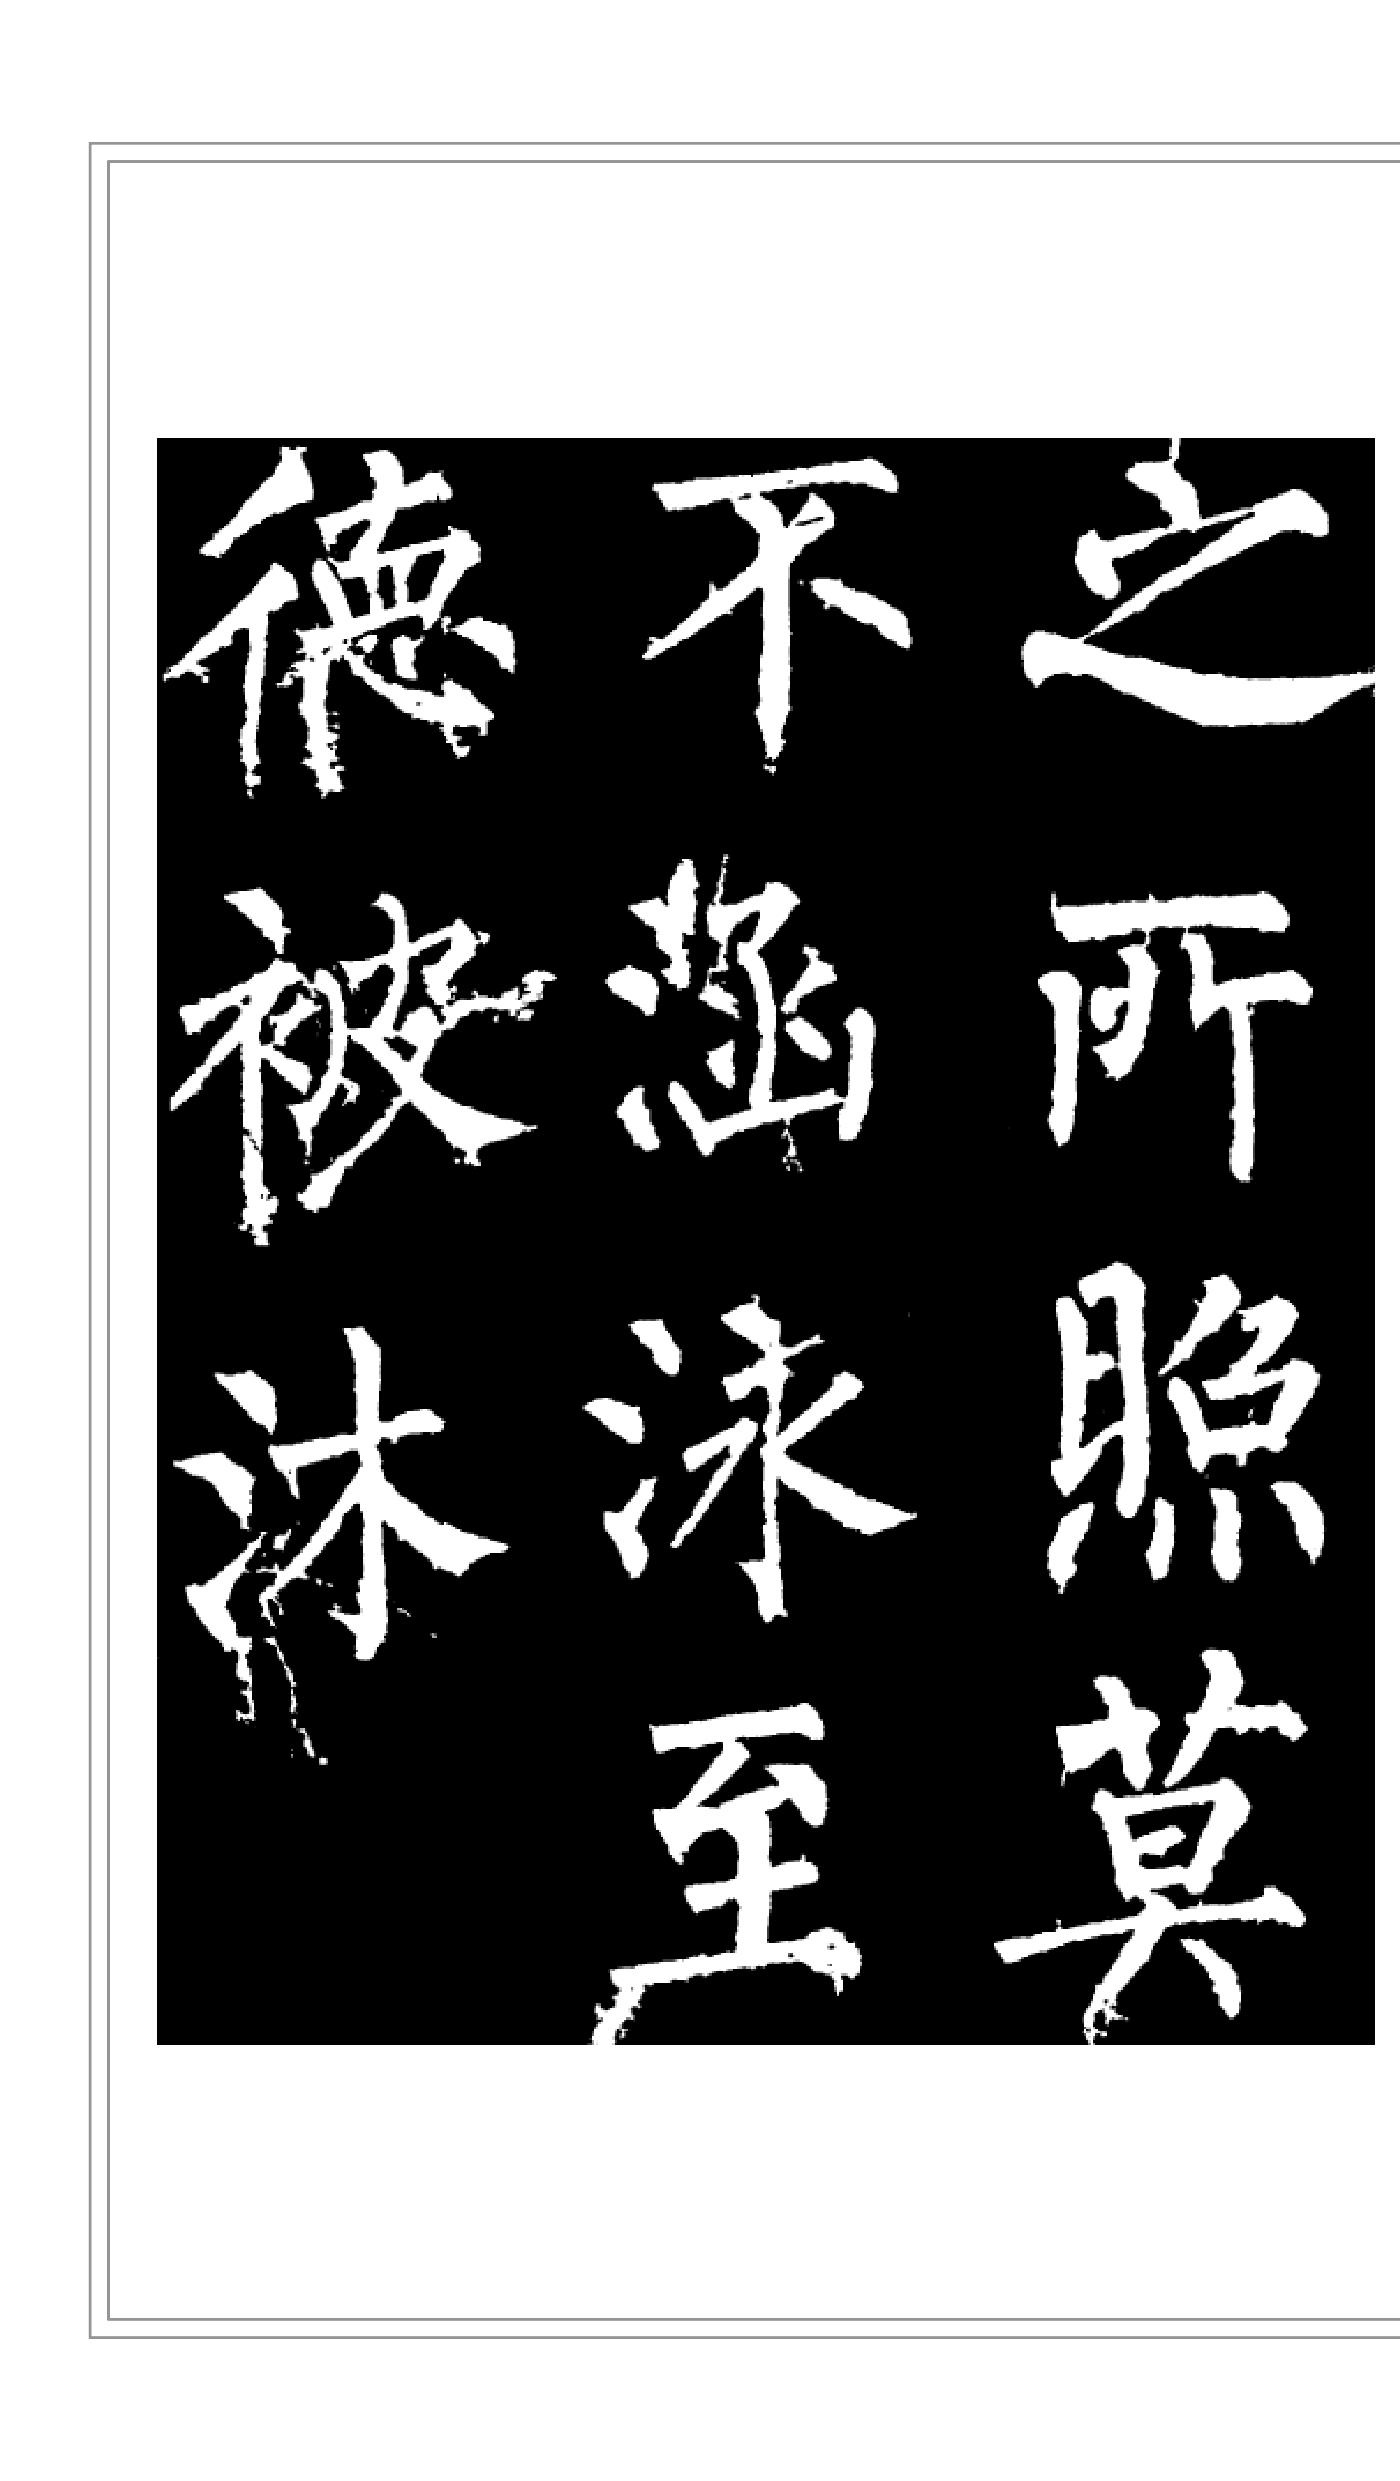 之所照莫
不涵泳至
德被沐